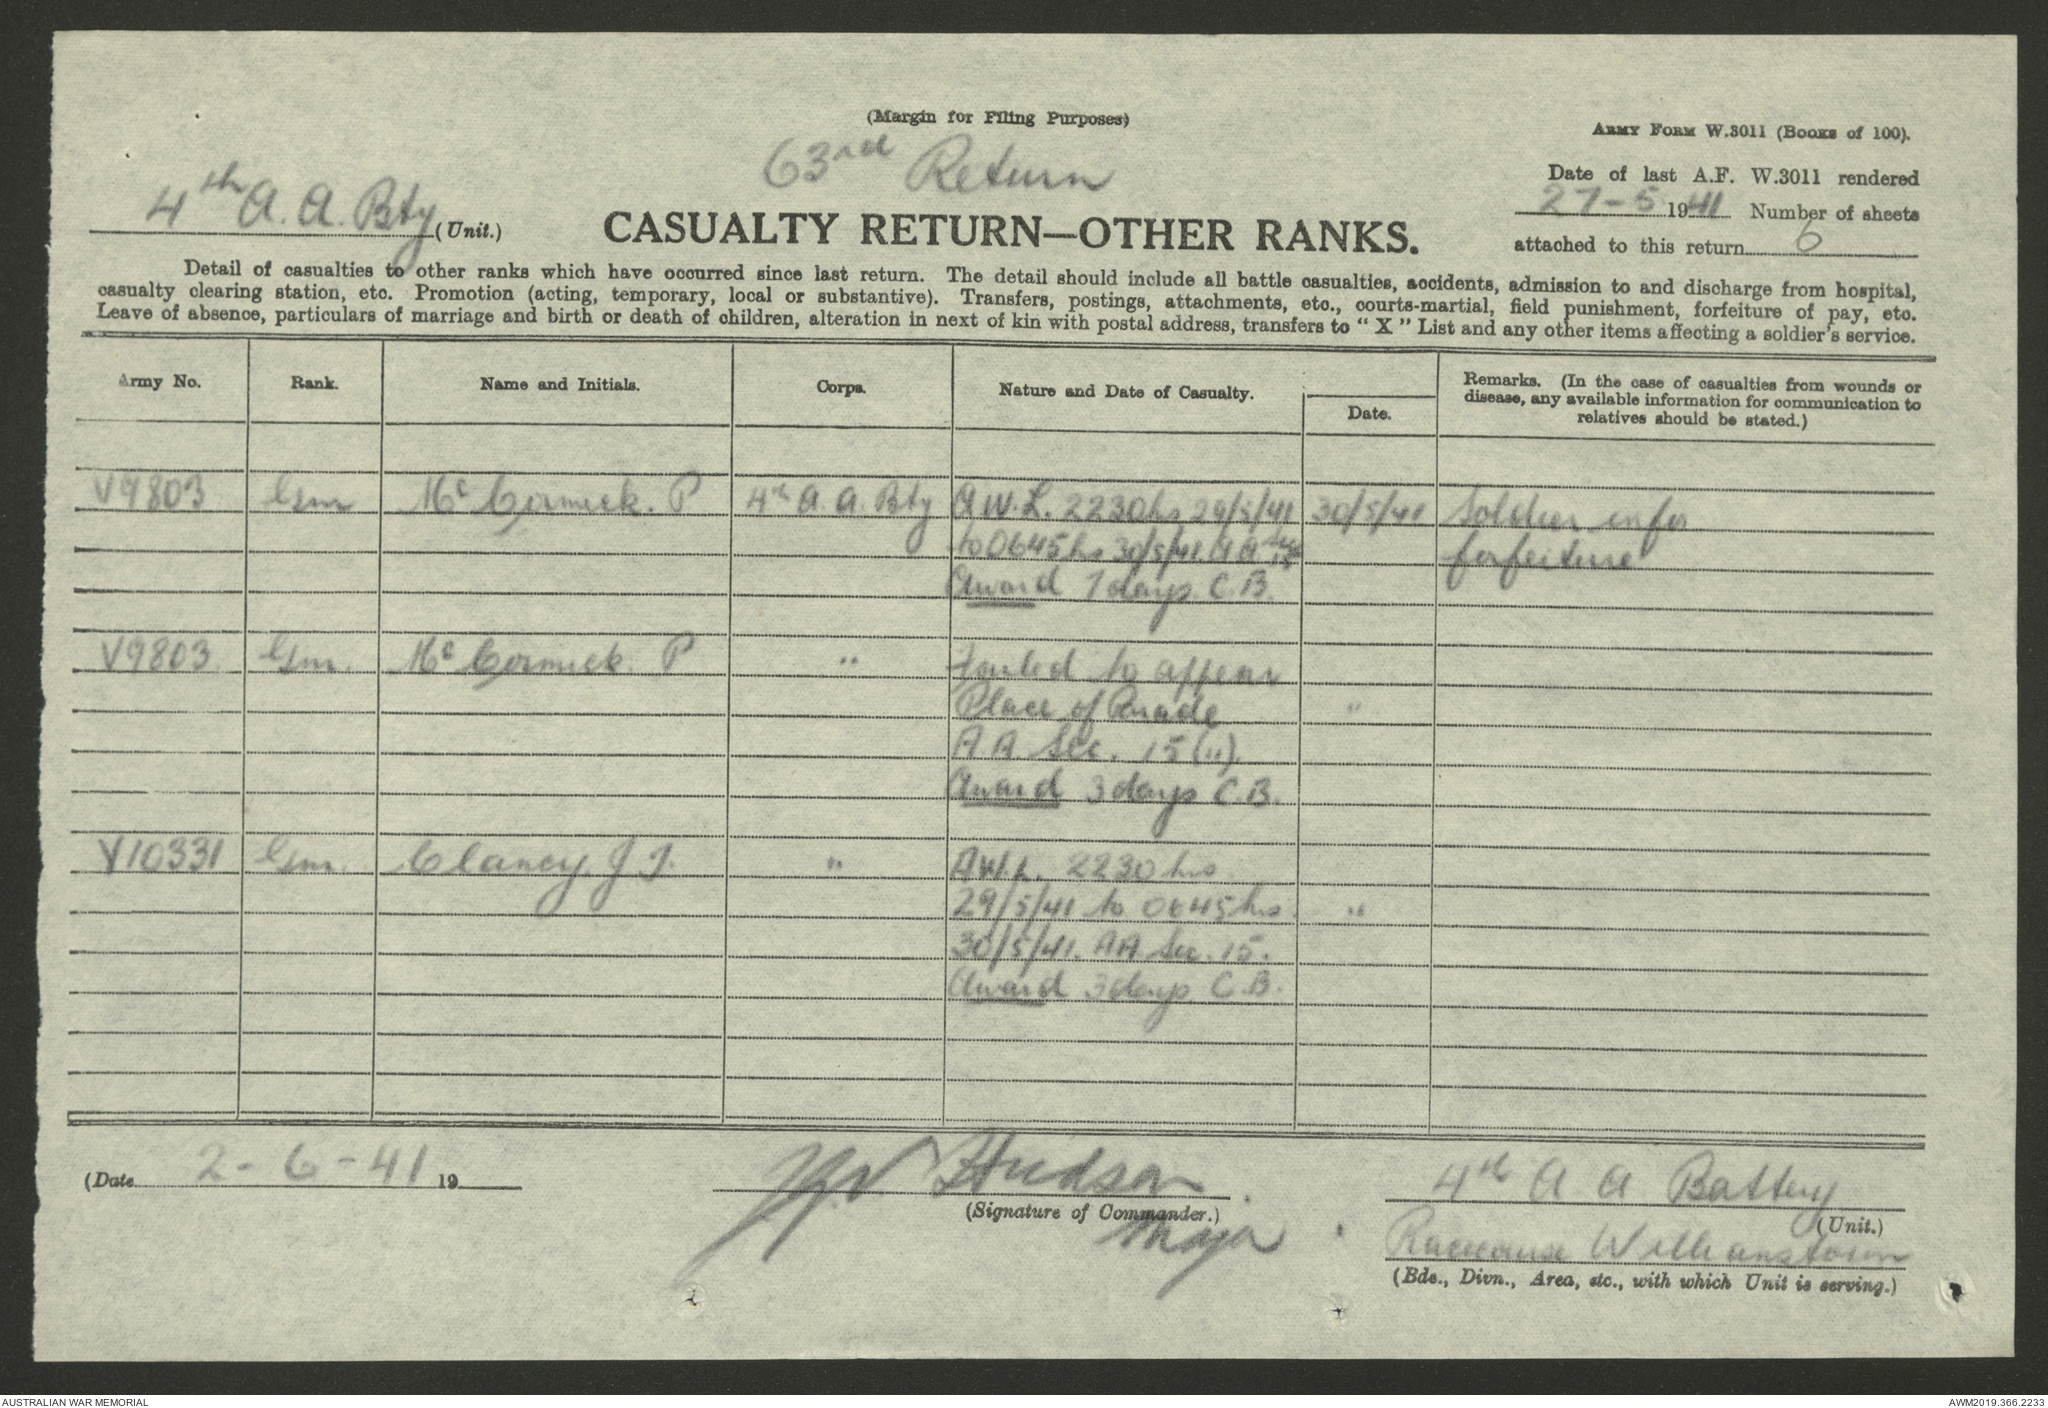 (Margin for Filing Purposes)
63rd Return
ARMY FORM W.3011 (BOOKS OF 100).
Date of last A.F. W.3011 rendered
27-5 1941 Number of sheets
attached to this return 6
4th A.A. Bty (Unit.)
CASUALTY RETURN—OTHER RANKS.
Detail of casualties to other ranks which have occurred since last return. The detail should include all battle casualties, accidents, admission to and discharge from hospital,
casualty clearing station, etc. Promotion (acting, temporary, local or substantive). Transfers, postings, attachments, etc., courts-martial, field punishment, forfeiture of pay, etc.
Leave of absence, particulars of marriage and birth or death of children, alteration in next of kin with postal address, transfers to "X" List and any other items affecting a soldier's service.
Army No. Rank. Name and Initials. Corps. Nature and Date of Casualty. Date. Remarks. (In the case of casualties from wounds or
disease, any available information for communication to
relatives should be stated.)
V9803 Gnr McCormick. P 4th A.A. Bty A.W.L. 2230hrs 29/5/41 30/5/41 Soldier
to 0645hrs 30/5/41. A A 15 forfeiture
Award 7 days. C.B.
V9803 Gnr. McCormick. P " Failed to appear
Place of Parade "
A.A. Sec. 15 (..).
Award 3 days C.B.
V10331 Gnr. Clancy. J J. " A.W.L. 2230 hrs
29/5/41 to 0645hrs. "
30/5/41. AA Sec. 15.
Award 3 days C.B.
(Date 2-6-41 19
Hudson
(Signature of Commander.)
Major
4th A A Battery
(Unit.)
Racecourse Williamstown
(Bde., Divn., Area, etc., with which Unit is serving.)
AUSTRALIAN WAR MEMORIAL
AWM2019.366.2233